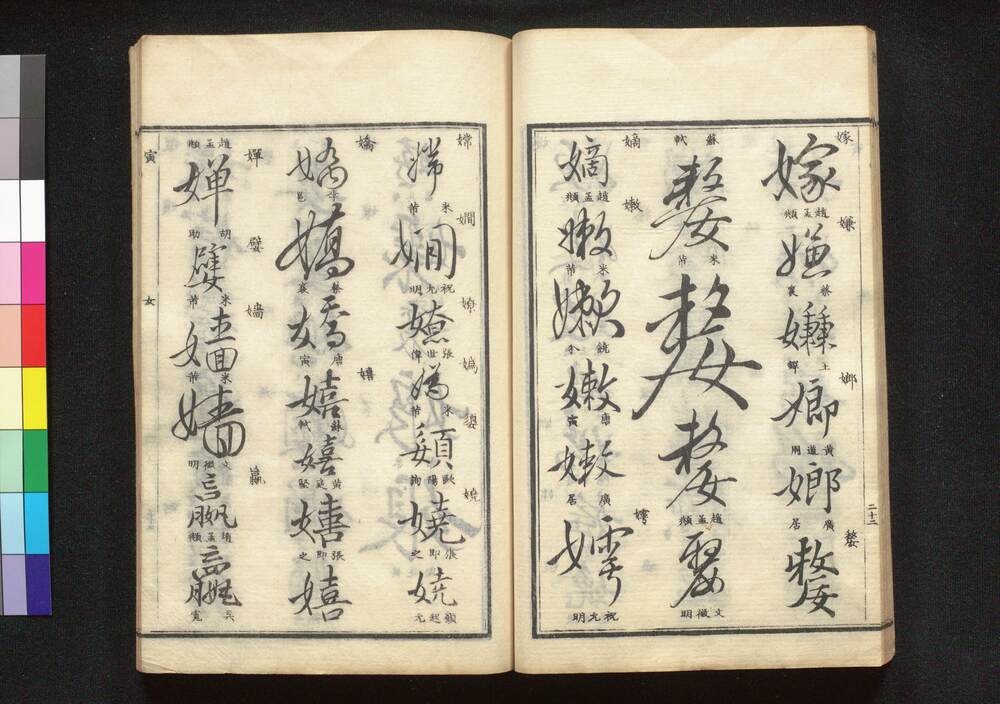 嫁
嫁
趙孟頫
嫌
嫌
蔡襄
嫌
王鐸
嫏
嫏
黄道周
嫏
廣居
嫠
嫠
二十二
蘇軾
嫠
米芾
嫠
嫠
趙孟頫
嫠
文徵明
嫡
嫡
趙孟頫
嫩
嫩
米芾
嫩
嫩
唐寅
嫩
廣居
嫮
嫮
祝允明
嫦
嫦
米芾
嫺
嫺
祝允明
嫽
嫽
張世偉
嬀
米芾
歐陽詢
嬈
嬈
張即之
嬈
嬌
嬌
嬌
蔡襄
嬌
唐寅
嬉
嬉
蘇軾
嬉
黄庭堅
嬉
張即之
嬉
嬋
趙孟頫
嬋
胡助
嬖
嬖
米芾
嬙
嬙
米芾
嬙
文徵明
嬴
嬴
趙孟頫
嬴
吳寬
寅
女